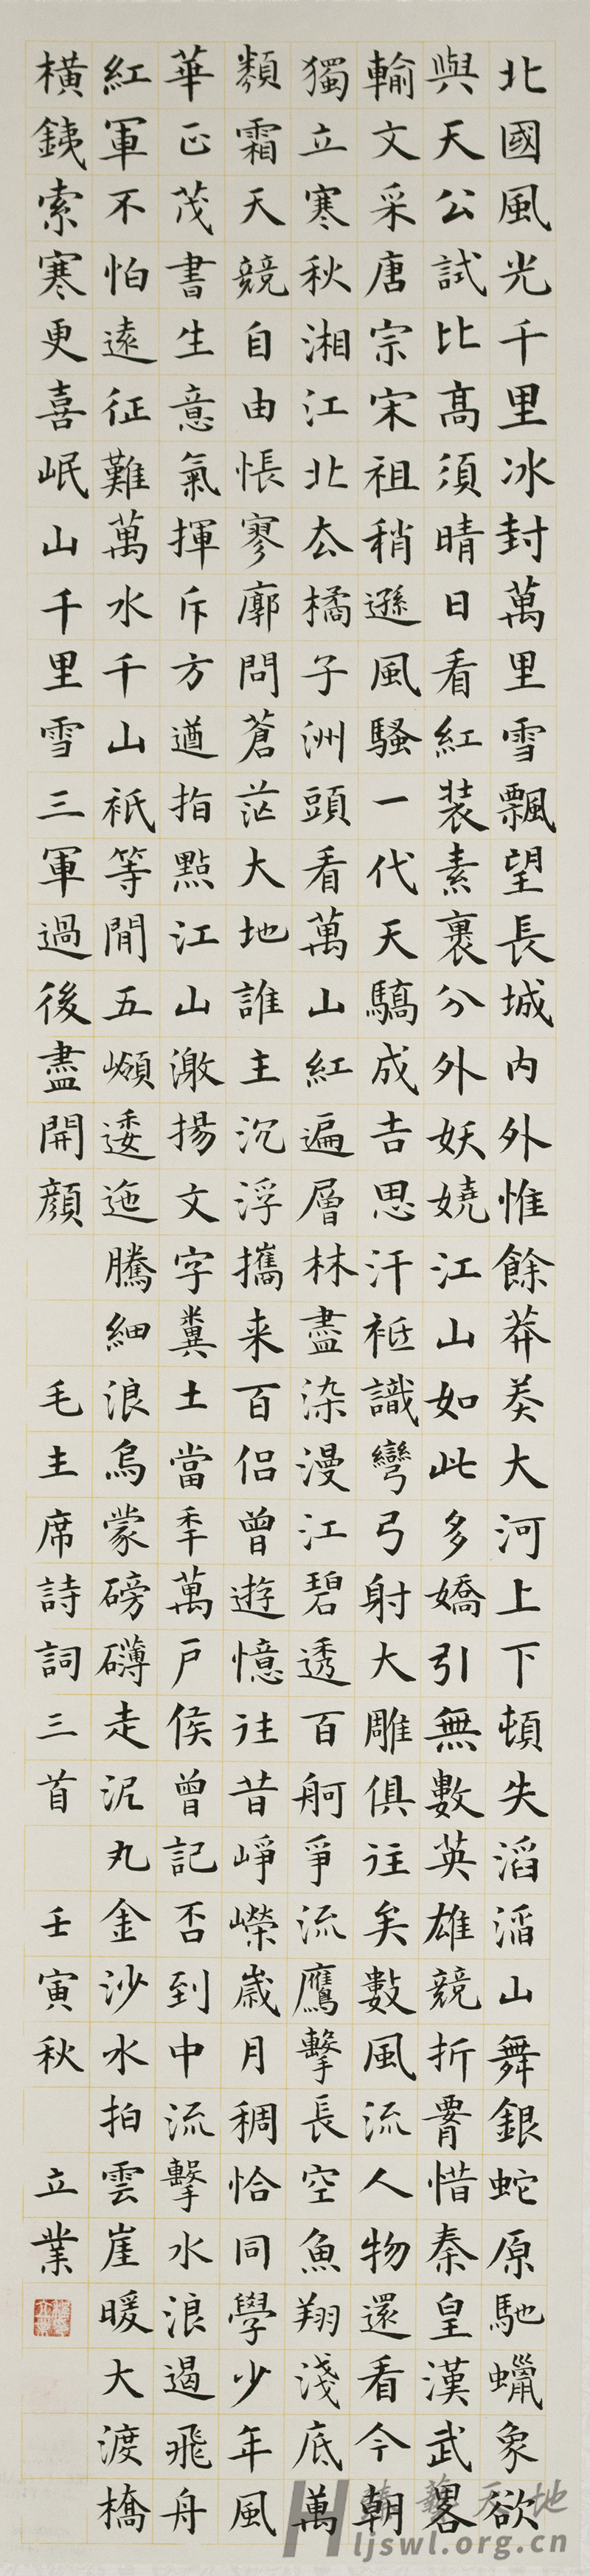 北國風光千里冰封萬里雪飄望長城内外惟餘莽莽大河上下頓失滔滔山舞銀蛇原馳蠟象欲
與天公試比高須晴日看紅装素裹分外妖嬈江山如此多嬌引無數英雄競折腰惜秦皇漢武畧
輸文采唐宗宋祖稍遜風騷一代天驕成吉思汗衹識彎弓射大雕俱往矣數風流人物還看今朝
獨立寒秋湘江北去橘子洲頭看萬山紅遍層林盡染漫江碧透百舸爭流鷹擊長空魚翔淺底萬
類霜天競自由悵寥廓問蒼茫大地誰主沉浮攜来百侣曾遊憶往昔崢嶸歲月稠恰同學少年風
華正茂書生意氣揮斥方遒指點江山激揚文字糞土當年萬戶侯曾記否到中流擊水浪遏飛舟
紅軍不怕遠征難萬水千山衹等閒五嶺逶迤騰細浪烏蒙磅礴走泥丸金沙水拍雲崖暖大渡橋
橫鐵索寒更喜岷山千里雪三軍過後盡開顏 毛主席詩詞三首 壬寅秋 立業
ljswl.org.cn